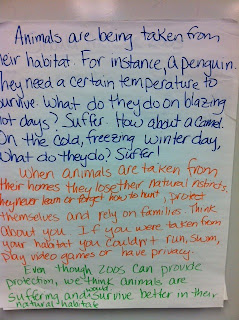 Animals are being taken from
their habitat. For instance, a penguin.
They need a certain temperature to
survive. What do they do on blazing
hot days? Suffer. How about a camel.
On the cold, freezing winter day,
what do they do? Suffer!
When animals are taken from
their homes they lose their natural instincts.
they never learn or forget how to hunt, protect
themselves and rely on families. Think
about you. If you were taken from
your habitat you couldn't run, swim,
play video games or have privacy.
Even though zoos can provide
protection, we think animals are
suffering and would survive better in their
natural habitat